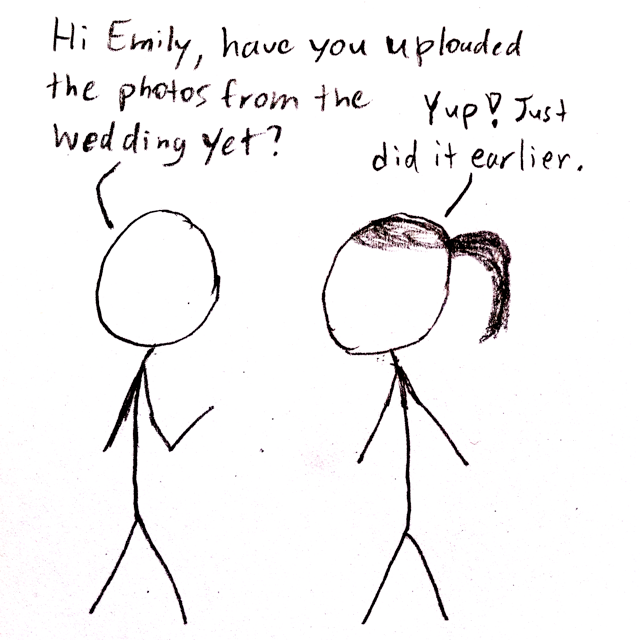 Hi Emily, have you uploaded
the photos from the
wedding yet?
Yup! Just
did it earlier.